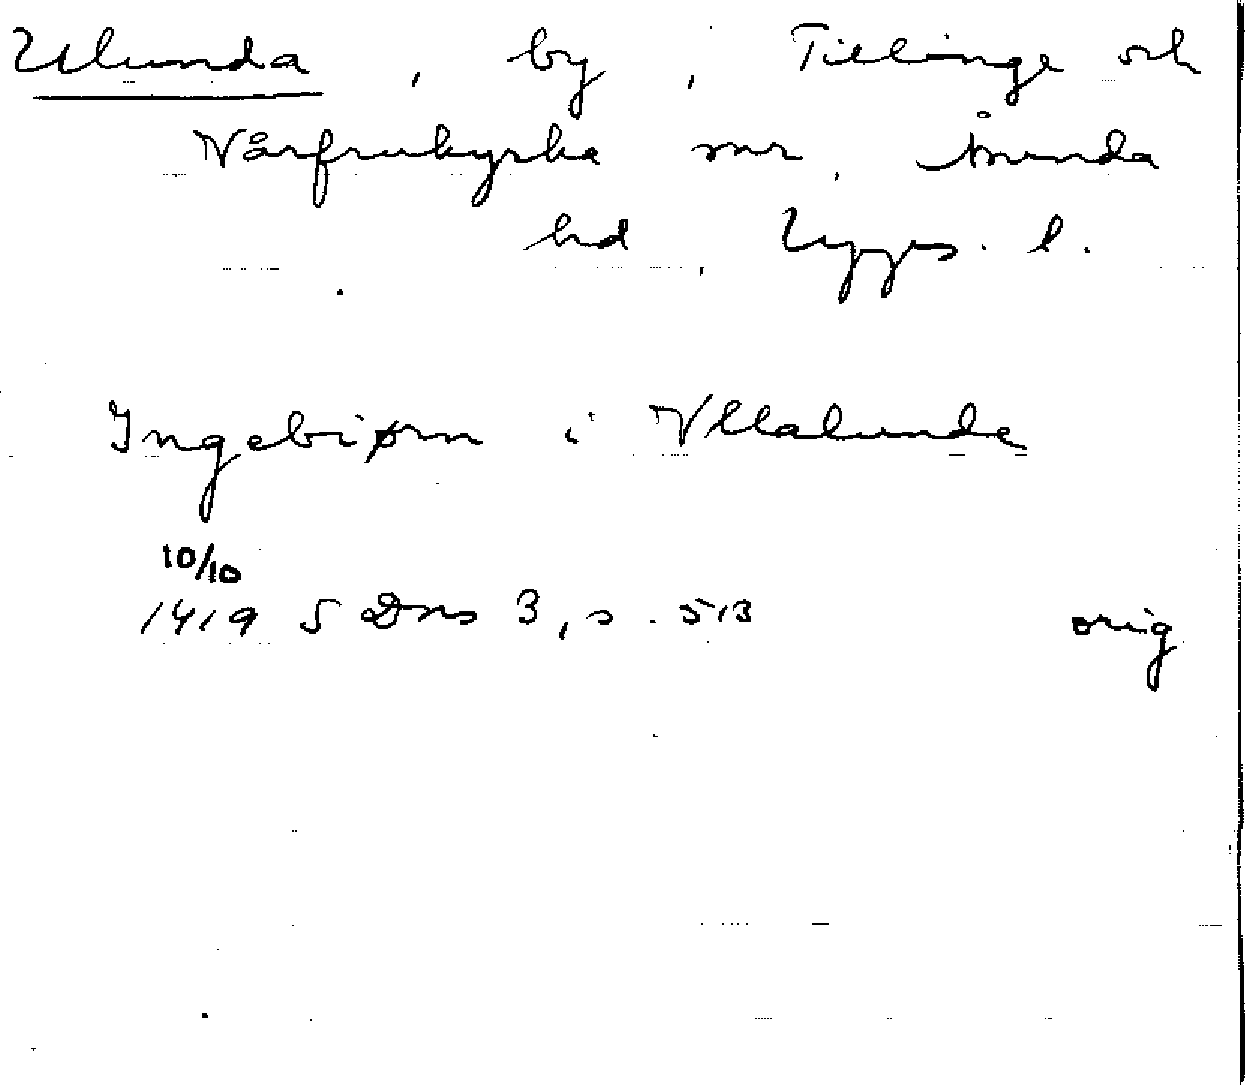 Ulunda, by, Tillinge och
Vårfrukyrka snr, Åsunda
hd, Upps. l.
Ingebiørn i Vllalunda
10/10
1419 SDns 3, s. 513 orig